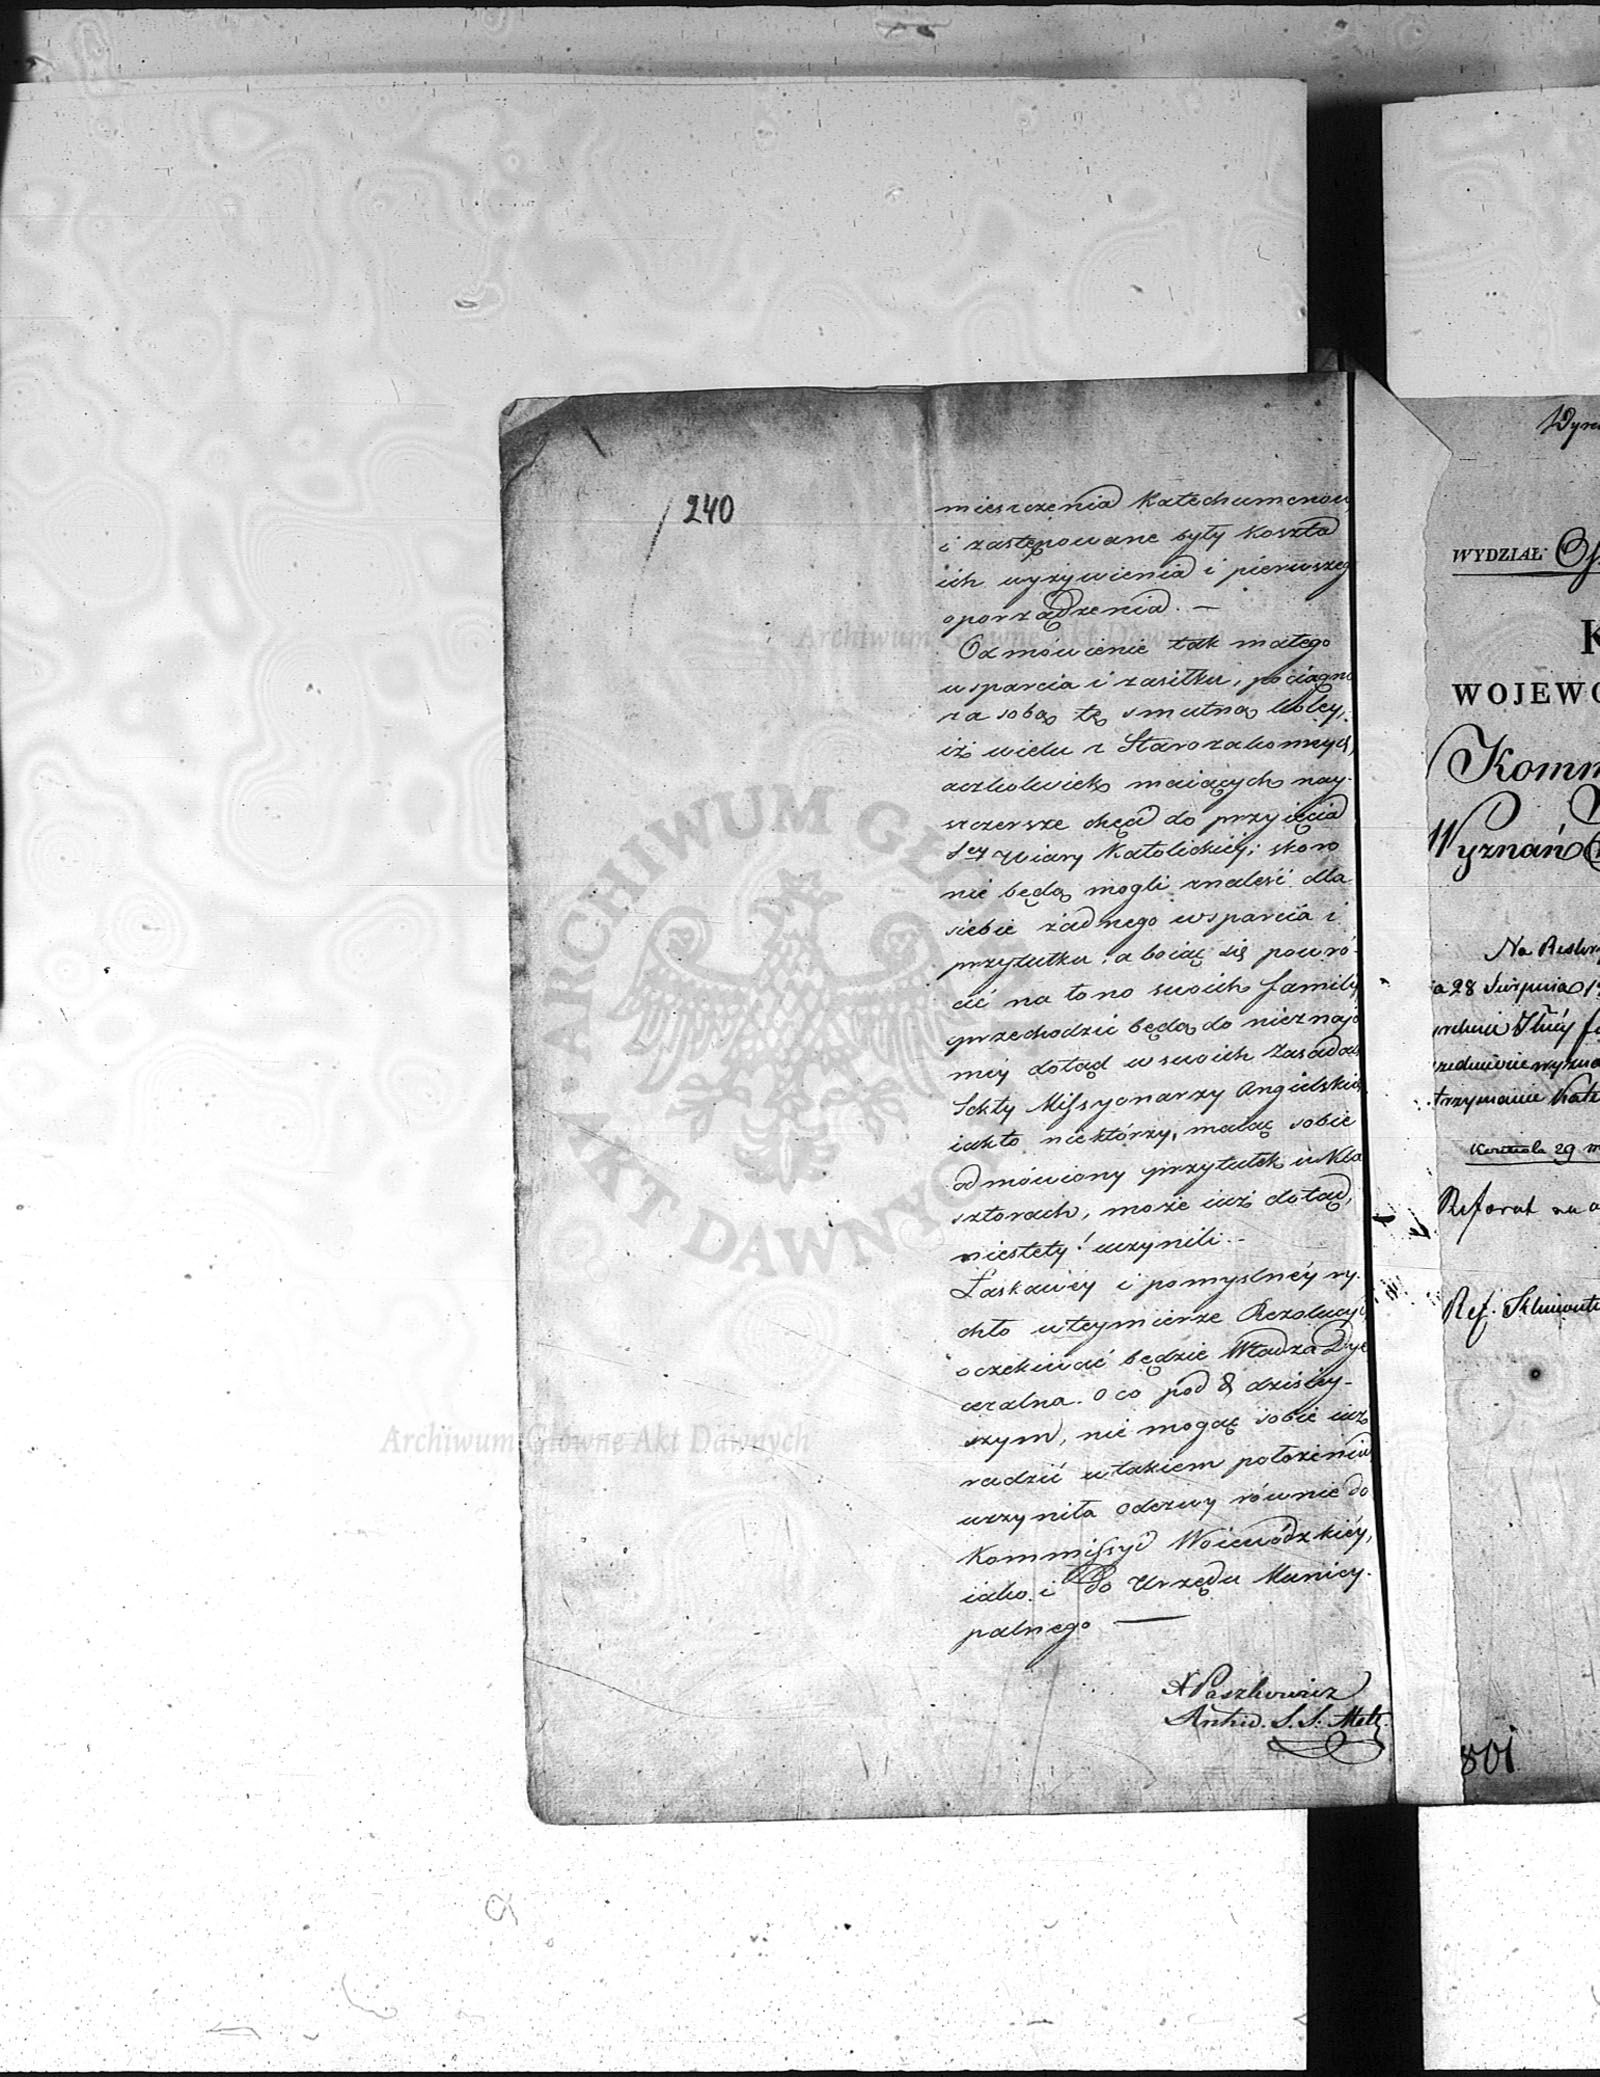 240
mieszczenia Katechumenow
i zastępowane były koszta
ich wyżywienia i pierwszeg
oporządzenia. —
Odmówienie tak małego
wsparcia i zasiłku, pociągn
za sobą tę smutną koley,
iż wielu z Starozakonnych,
aczkolwiek maiących nay-
szczersze chęci do przyięcia
Sey Wiary Katolickiey; skoro
nie będą mogli znaleść dla
siebie żadnego wsparcia i
przytułku, a boiąc się powró-
cić na łono swoich familij
przechodzić będą do nieznajo
mey dotąd w swoich Zasadach
Sekty Missyonarzy Angielskich
iakto niektórzy, maiąc sobie
odmówiony przytułek w Kla
sztorach, może iuż dotąd,
niestety! uczynili. -
Łaskawéy i pomyslnéy ry-
chło w teymierze Rezolucyi
oczekiwać będzie Władza Dye
cezalna. o co pod & dzisiey-
szym, nie mogąc sobie iuż
radzić w takiem położeniu
uczyniła odezwy równie do
Kommissyi Woiewódzkiéy,
iako i do Urzędu Municy-
palnego —
X Paszkowicz
Archid. S. S: Mett.
WYDZIAŁ
K
WOJEWO
Komm
Wyznań
Na Reskry
a 28 Sierpnia
trzymanie Kate
29 m
Referat na
Ref.
801
Archiwum Główne Akt Dawnych
Archiwum Główne Akt Dawnych
ARCHIWUM GŁÓWNE AKT DAWNYCH